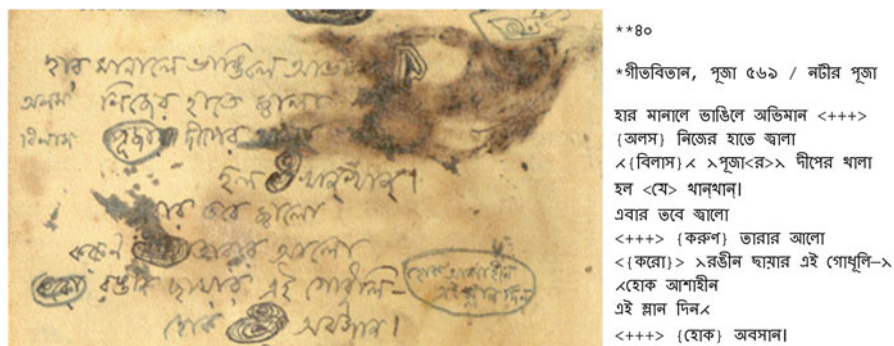 হার মানালে ভাঙিলে
অলস নিজের হাতে জ্বালা
বিলাস পূজার দীপের
হল খান্‌খান্‌।
তবে জ্বালো
আলো
রঙীন ছায়ার এই গোধূলি–
হোক আশাহীন
এই ম্লান দিন
হোক অবসান।
**৪০
*গীতবিতান, পূজা ৫৬৯ / নটীর পূজা
হার মানালে ভাঙিলে অভিমান <+++>
{অলস} নিজের হাতে জ্বালা
⋌{বিলাস}⋌ ⋋পূজা<র>⋋ দীপের থালা
হল <যে> খান্‌খান্‌।
এবার তবে জ্বালো
<+++> {করুণ} তারার আলো
<{করো}> ⋋রঙীন ছায়ার এই গোধূলি–⋋
⋌হোক আশাহীন
এই ম্লান দিন⋌
<+++> {হোক} অবসান।